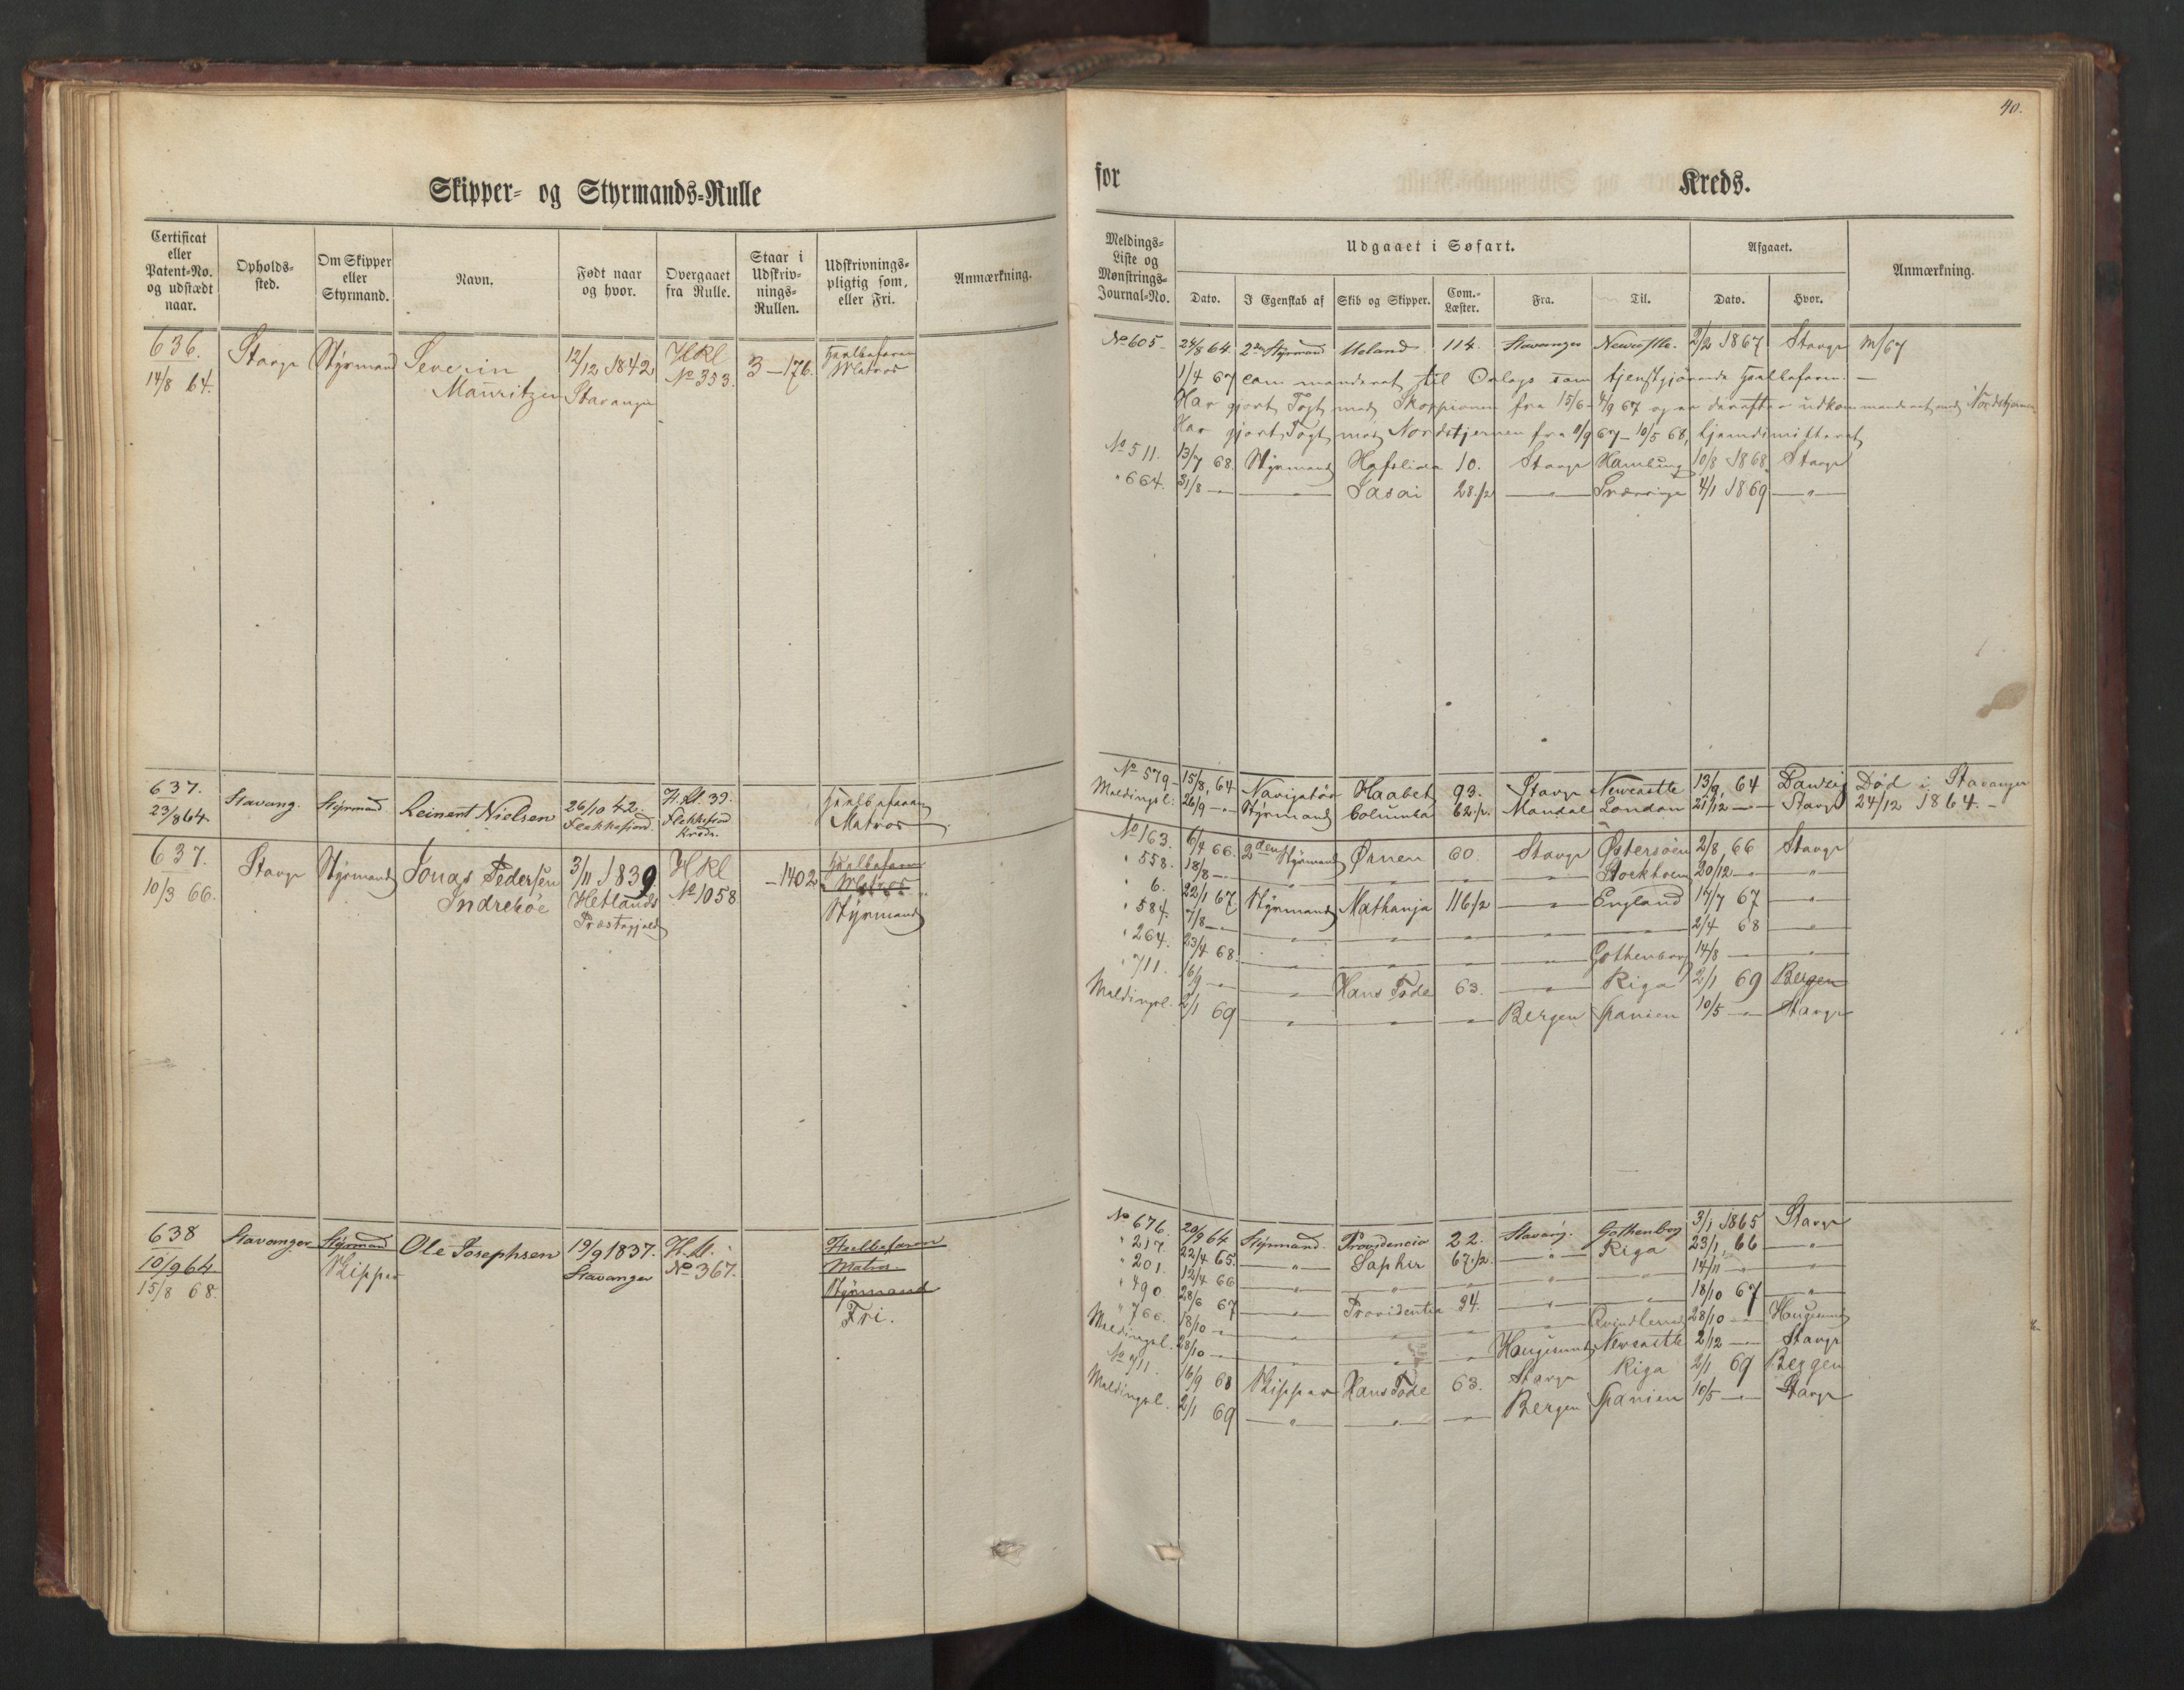 40.
Skipper- og Styrmands-Rulle
for Kreds.
Certificat eller Patent-No. og udstædt naar.
Opholds-sted.
Om Skipper eller Styrmand.
Navn.
Født naar og hvor.
Overgaaet fra Rulle.
Staar i Udskriv-nings-Rullen.
Udskrivnings-pligtig som, eller Fri.
Anmærkning.
Meldings-Liste og Mønstrings-Journal-No.
Udgaaet i Søfart.
Dato.
I Egenskab af
Skib og Skipper.
Com.-Læster.
Fra.
Til.
Afgaaet.
Dato.
Hvor.
Anmærkning.
636. 14/8 64.
Stavgr
Styrmand
Severin Mauritzen
12/12 1842 Stavanger
HRl No 353.
3 - 176.
Heelbefaren Matros
No 605 24/8 64 2den Styrmand Ueland 114. Stavanger Newcastle. 2/2 1867 Stavgr M/67
1/4 67 commanderet til Orlogs som tjenstgjørende Heelbefaren. —
Har gjort Togt med Skorpionen fra 15/6 - 4/9 67 og er derefter udkommanderet med Nordstjernen
Har gjort Togt med Nordstjernen fra 11/9 67 - 10/5 68, hjemdimitteret
No 511. 13/7 68. Styrmand Hafslien 10. Stavgr Hamburg 10/8 1868 Stavgr
" 664. 31/8 — — " — 28 1/2 — " — Sverrige 4/1 1869 — " —
637. 23/8 64
Stavang.
Styrmand
Reinert Nielsen
26/10 42. Flekkefjord.
H. Rl. 39. Flekkefjord Kreds.
Heelbefaren Matros
No 579 15/8 64 Navigatør Haabet 93. Stavgr Newcastle 13/9 64 Danzig Død i Stavanger
Meldingsl. 26/9 — " Styrmand Columba 62 1/2. Mandal London 21/12 — Stavgr 24/12 1864. —
637. 10/3 66.
Stavgr
Styrmand
Jonas Pedersen Indrehöe
3/11 1839 Hetlands Præstegjeld
HRl No 1058
- 1402
Heelbefaren Matros
Styrmand
No 163. 6/4 66. 2den Styrmand Ørnen 60. Stavgr Østersöen 2/8 66 Stavgr
" 558. 18/8 — " — " — " — " Stockholm 20/12 — "
" 6. 22/1 67 Styrmand Nathanja 116 1/2 — " — England 17/7 67 — " —
" 584. 7/8 — " — " — " — " — 2/4 68 — " —
" 264. 23/4 68. — " — " — " — " Gothenborg 14/8 — "
" 711. 16/9 — " — Hans Tode 63. — " — Riga 2/1 69 Bergen
Meldingsl. 2/1 69 — " — " — " Bergen Spanien 10/5 — " Stavgr
638 10/9 64 15/8 68.
Stavanger
Styrmand Skipper
Ole Josephsen
19/9 1837. Stavanger
H. Rl. No 367.
Heelbefaren Matros
Styrmand
Fri.
No 676. 20/9 64 Styrmand. Providencia 22. Stavang. Gothenborg 3/1 1865 Stavgr
" 217. 22/4 65. — " — Saphir 67 1/2. — " — Riga 23/1 66 — " —
" 201. 12/4 66 — " — " — " — " — " 14/11 — "
" 490. 28/6 67 — " — Providentia 94. — " — " 18/10 67 — " —
" 766. 18/10 — " — " — " — " 28/10 — Haugesund
Meldingsl. 28/10 — " — " — " Haugesund Newcastle 2/12 — Stavgr
No 711. 16/9 68 Skipper Hans Tode 63. Stavgr Riga 2/1 69 Bergen
Meldingsl. 2/1 69 — " — " — " Bergen Spanien 10/5 — " Stavgr